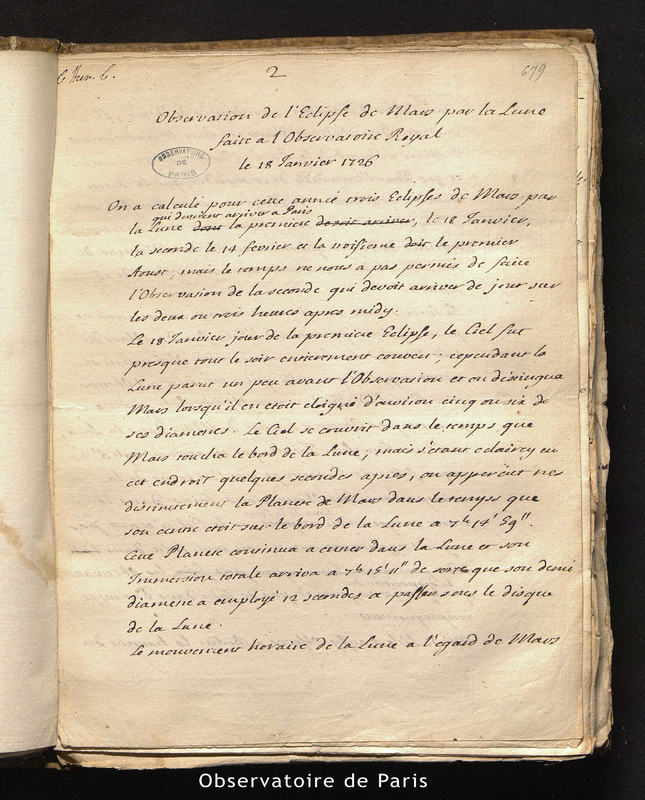 2
679
Observation de l'Eclipse de Mars par la Lune
faite a l'Observatoire Royal
le 18 Janvier 1726
OBSERVATOIRE
DE
PARIS
On a calculé pour cette année trois Eclipses de Mars par
qui devoient arriver a Paris
la Lune dont la premiere devoit arriver, le 18 Janvier,
la seconde le 14 fevrier et la troisieme doit le premier
Aoust; mais le temps ne nous a pas permis de faire
l'Observation de la seconde qui devoit arriver de jour sur
les deux ou trois heures apres midy.
Le 18 Janvier jour de la premiere Eclipse, le Ciel fut
presque tout le soir entierement couvert; cependant la
Lune parut un peu avant l'Observation et on distingua
Mars lorsqu'il en etoit eloigné d'environ cinq ou six de
ses diametres. Le Ciel se couvrit dans le temps que
Mars toucha le bord de la Lune; mais s'etant eclaircy en
cet endroit quelques secondes apres, on apperçut tres
distinctement la Planete de Mars dans le temps que
son centre etoit sur le bord de la Lune a 7h 14' 59".
Cette Planete continua a entrer dans la Lune et son
Immersion totale arriva a 7h 15' 11" de sorte que son demi
diametre a employé 12 secondes a passer sous le disque
de la Lune.
Le mouvement horaire de la Lune a l'egard de Mars
Observatoire de Paris